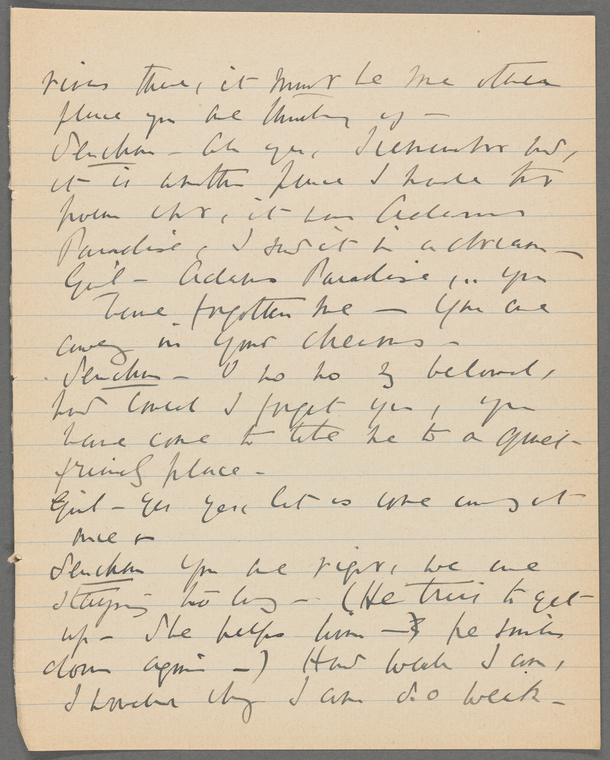 rivers there, it must be some other
place you are thinking of —
Senchan — Ah yes, I remember now,
it is another place I made the
poem about, it was Adams
Paradise, I saw it in a dream —
Girl — Adams Paradise ... you
have forgotten me — You are
away in your dreams —
Senchan — O no no my beloved,
how could I forget you, you
have come to take me to a quiet
friendly place —
Girl — Yes yes, let us come away at
once —
Senchan You are right, we are
staying too long — (He tries to get
up — She helps him — he sinks
down again —) How weak I am,
I wonder why I am so weak —